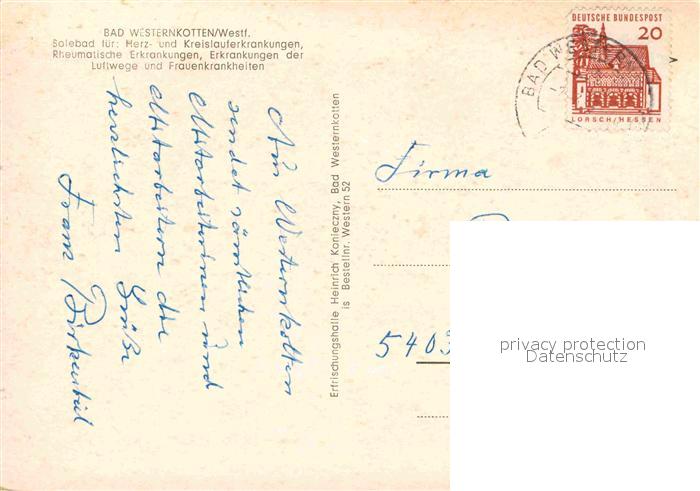 BAD WESTERNKOTTEN/Westf.
Solebad für: Herz- und Kreislauferkrankungen,
Rheumatische Erkrankungen, Erkrankungen der
Luftwege und Frauenkrankheiten
Aus Westernkotten
sendet sämtlichen
Mitarbeiterinnen und
Mitarbeitern die
herzlichsten Grüße
Franz
Erfrischungshalle Heinrich Konieczny, Bad Westernkotten
is Bestellnr. Western 52
DEUTSCHE BUNDESPOST
20
LORSCH/HESSEN
BAD WESTER
Firma
5403
privacy protection
Datenschutz